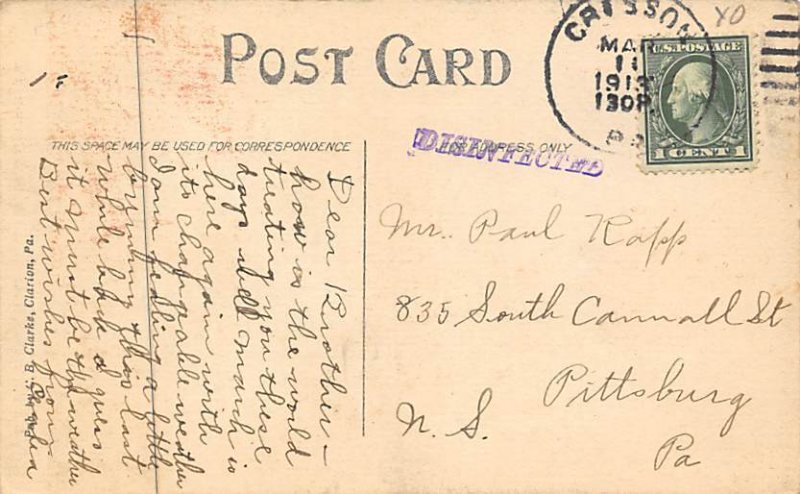 POST CARD
CRESSON
MAR
11
1913
130P
PA
U.S. POSTAGE
1 CENT 1
THIS SPACE MAY BE USED FOR CORRESPONDENCE
FOR ADDRESS ONLY
DISINFECTED
Dear Brother –
how is the world
treating you these
days well March is
here again with
its changeable weather
I am feeling a little
bum this last
while back I gues
it must be the weather
Best wishes from
Mr. Paul Rapp
835 South Cannall St
Pittsburg
N. S.
Pa
C. B. Clarke, Clarion, Pa.